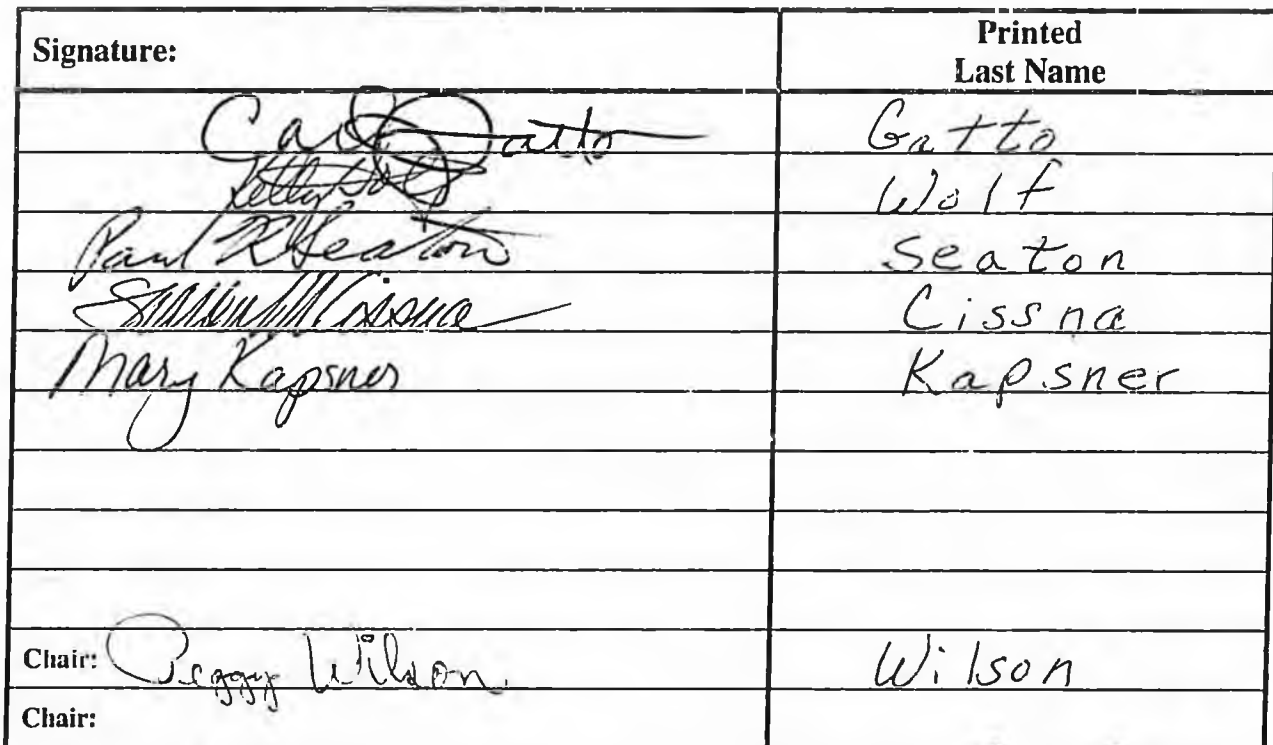 Signature: Printed Last Name
Carl Gatto Gatto
Kelly Wolf Wolf
Paul K Seaton Seaton
Sharon M. Cissna Cissna
Mary Kapsner Kapsner
Chair: Peggy Wilson Wilson
Chair: